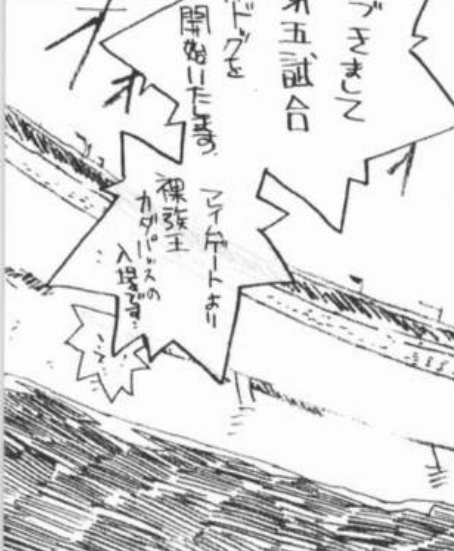 づきまして
第五試合
ドッグを
開始いたします。
ゲートより
裸族王
カダパッスの
入場です…